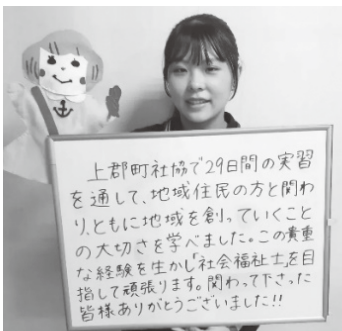 上郡町社協で29日間の実習
を通して、地域住民の方と関わ
り、ともに地域を創っていくこと
の大切さを学べました。この貴重
な経験を生かし「社会福祉士」を目
指して頑張ります。関わって下さった
皆様ありがとうございました!!